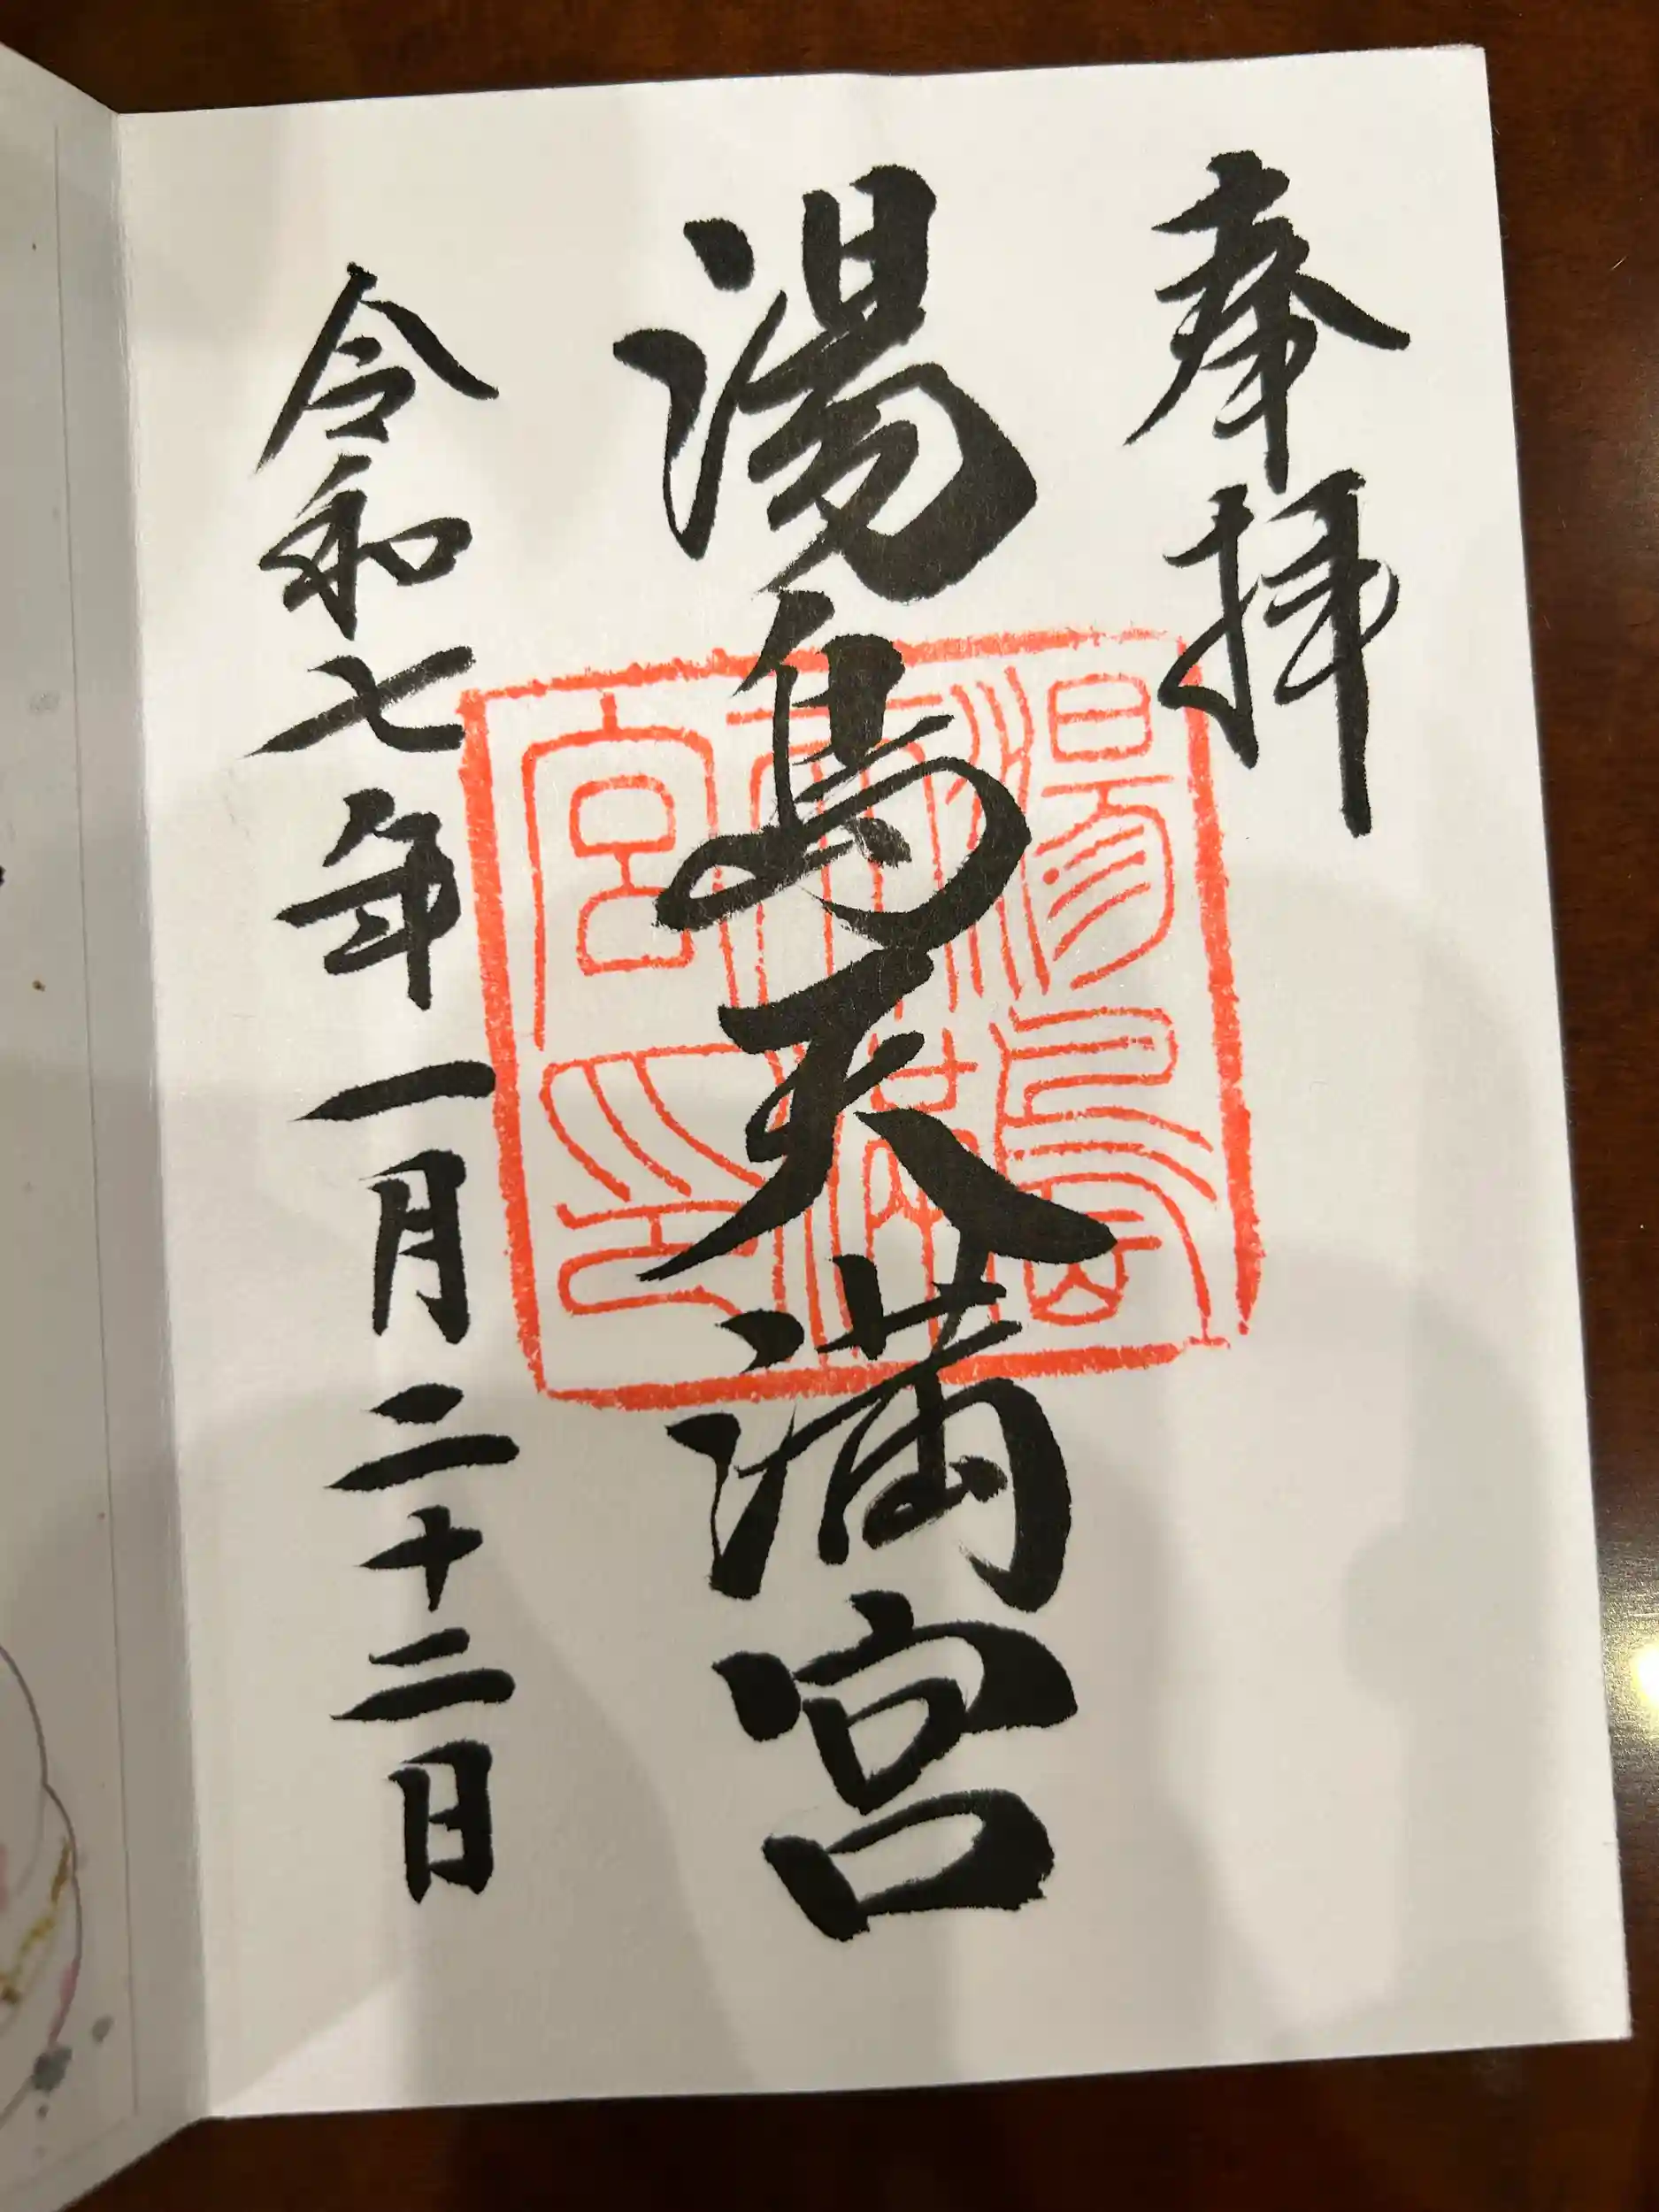 奉拝
湯島天満宮
令和七年一月二十二日
湯島天満宮印